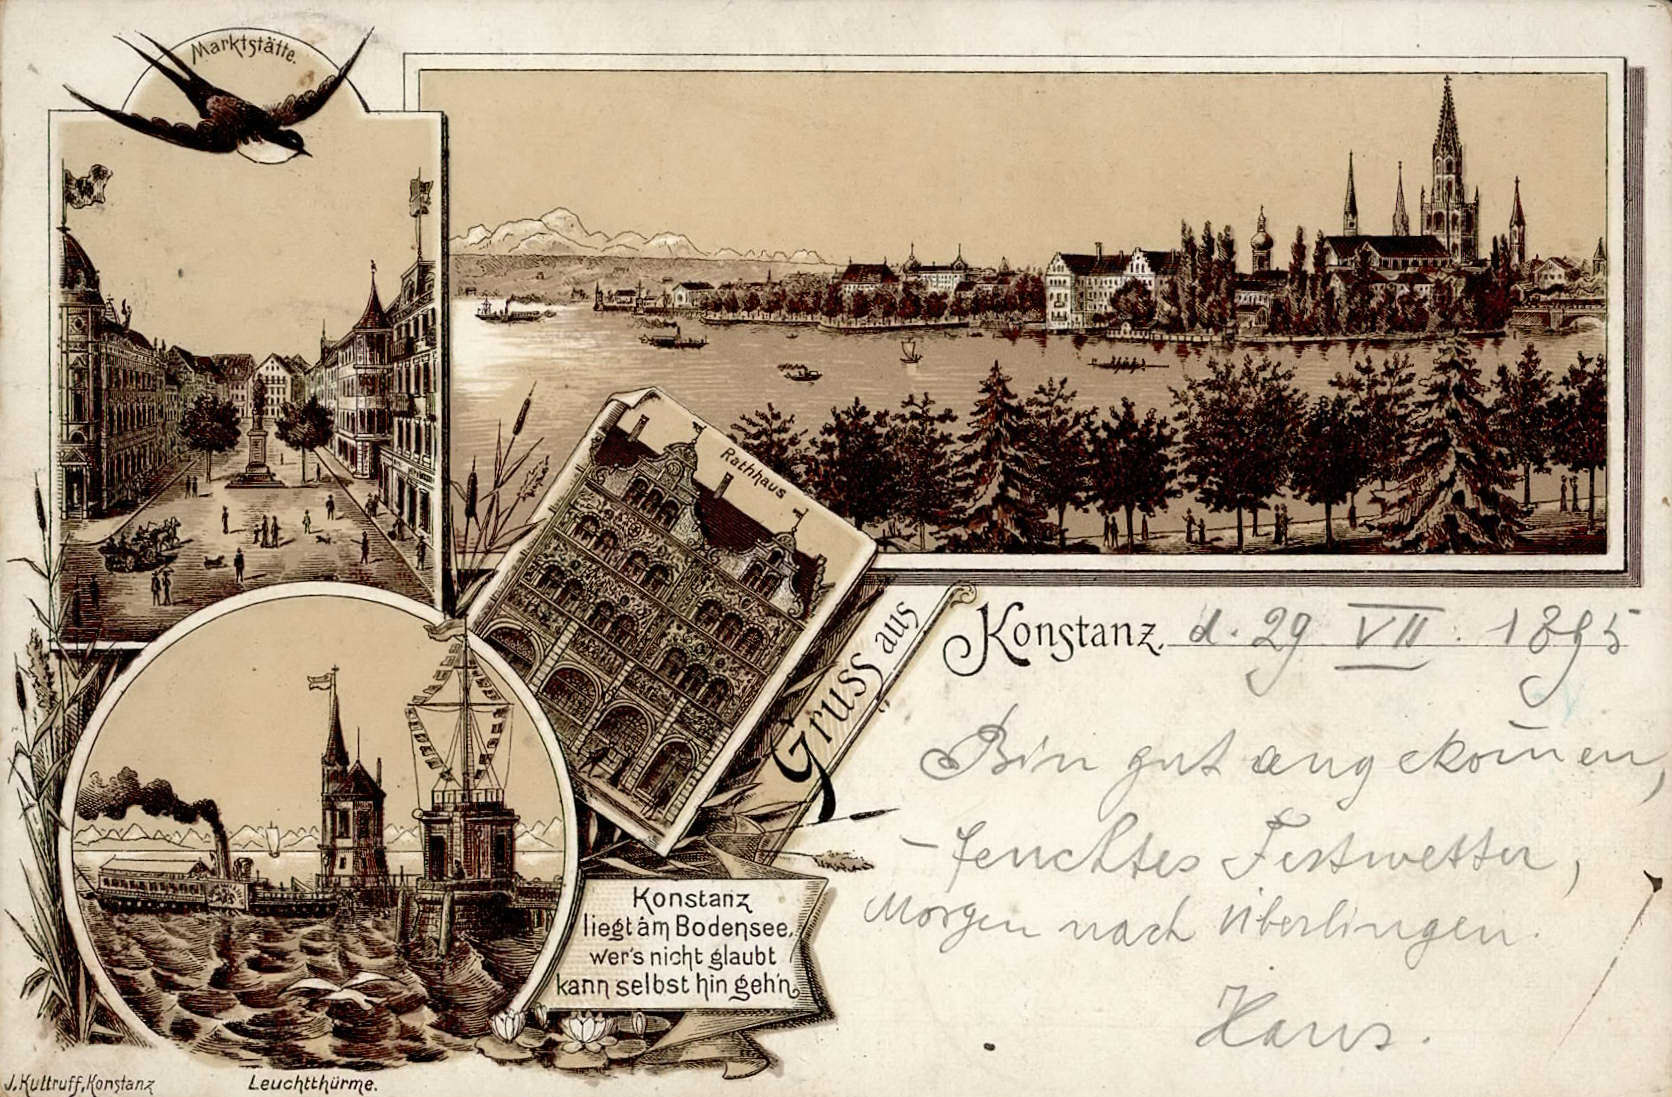 Marktstätte.
Rathhaus
Gruss aus
Konstanz, d. 29 VII. 1895
Bin gut angekom̅en,
- feuchtes Festwetter,
Morgen nach Überlingen.
Hans.
Konstanz
liegt am Bodensee,
wer's nicht glaubt
kann selbst hin geh'n.
J. Kuttruff, Konstanz
Leuchtthürme.